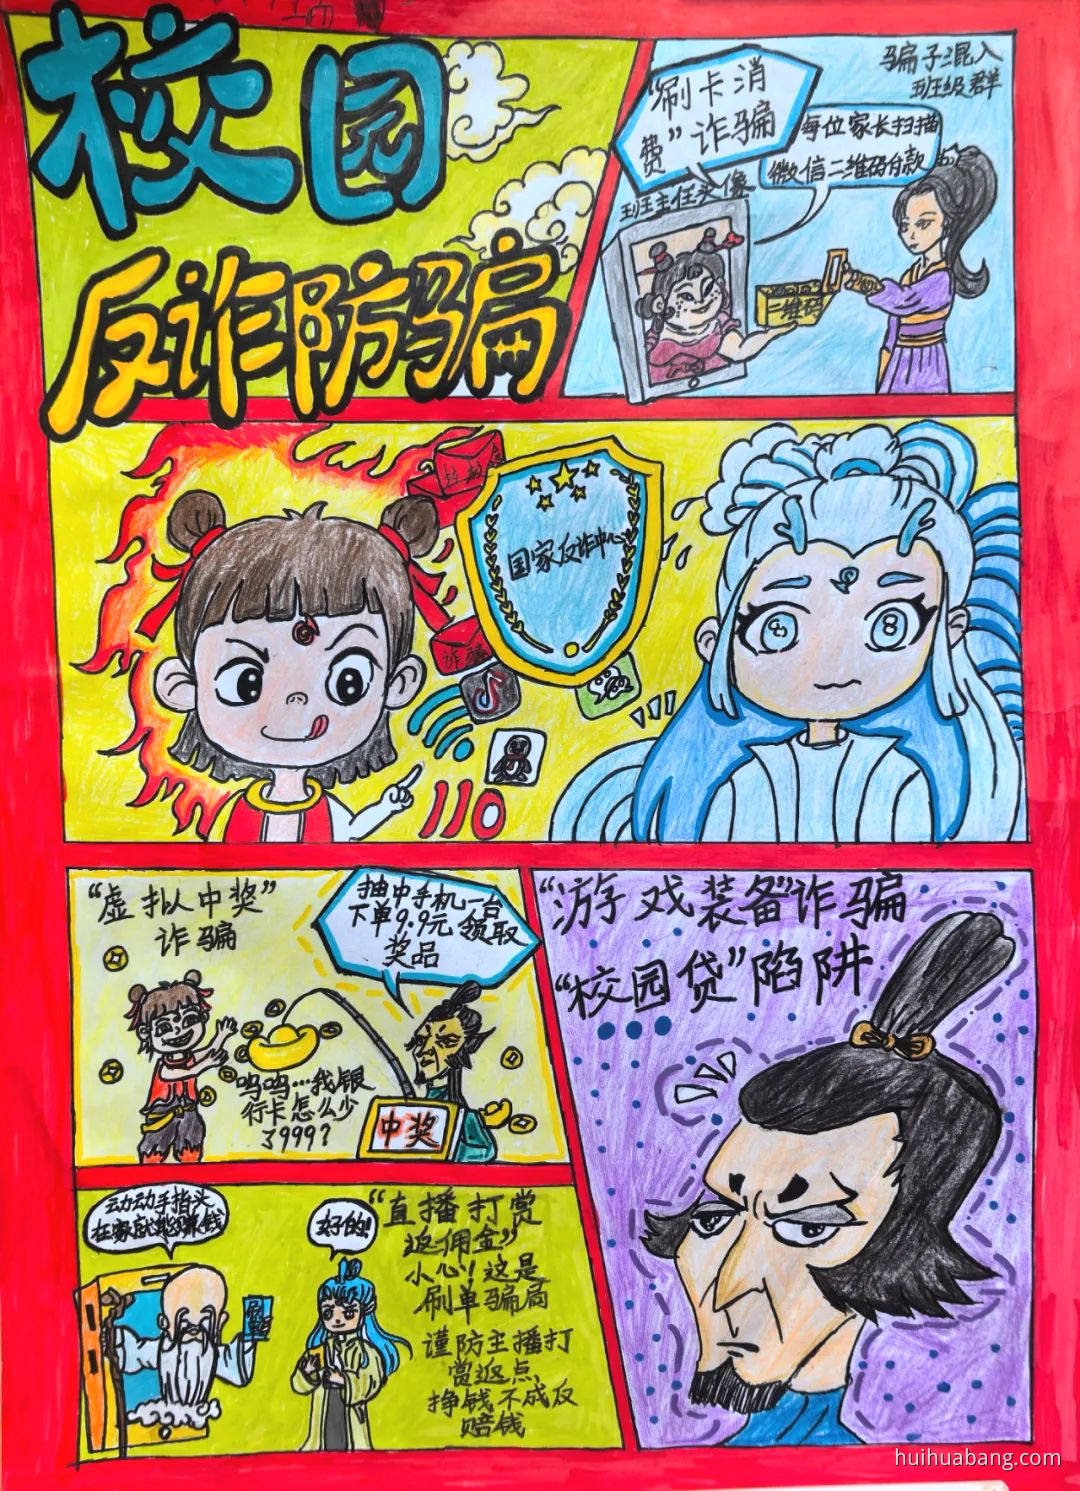 校园
反诈防骗
骗子混入
班级群
“刷卡消
费”诈骗
每位家长扫描
微信二维码付款
班主任头像
二维码
国家反诈中心
诈骗
110
“虚拟中奖”
诈骗
抽中手机一台
下单9.9元领取
奖品
呜呜…我银
行卡怎么少
了999?
中奖
“游戏装备”诈骗
“校园贷”陷阱
动动手指头
在家就能赚钱
好的!
“直播打赏
返佣金”
小心!这是
刷单骗局
谨防主播打
赏返点,
挣钱不成反
赔钱
huihuabang.com